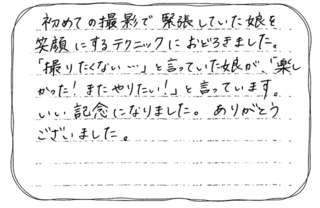 初めての撮影で緊張していた娘を
笑顔にするテクニックにおどろきました。
「撮りたくない…」と言っていた娘が、「楽し
かった！またやりたい！」と言っています。
いい記念になりました。ありがとう
ございました。